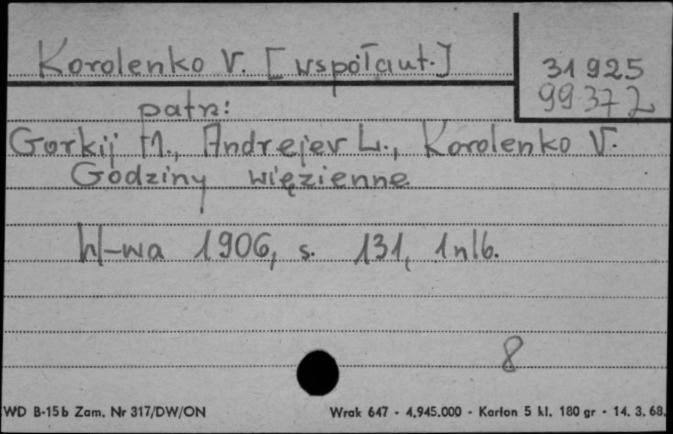 Korolenko V. [współaut.]
31925
99372
patrz:
Gorkij M., Andrejev L., Korolenko V.
Godziny więzienne
W-wa 1906, s. 131, 1 nlb.
8
WD B-15b Zam. Nr 317/DW/ON
Wrak 647 - 4.945.000 - Karton 5 kl. 180 gr - 14. 3. 68.